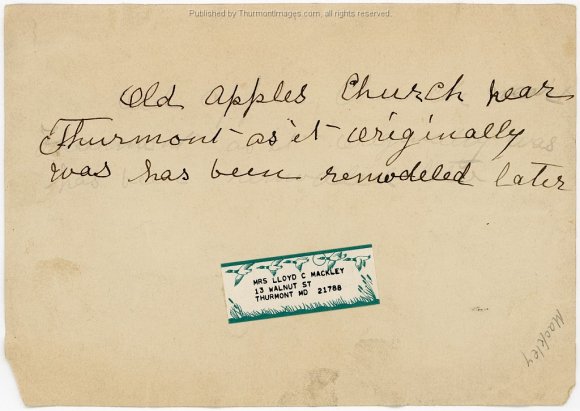 Published by Thurmontimages.com, all rights reserved.
Old apples Church near
Thurmont as it originally
was has been remodeled later
MRS LLOYD C MACKLEY
13 WALNUT ST
THURMONT MD 21788
Mackley